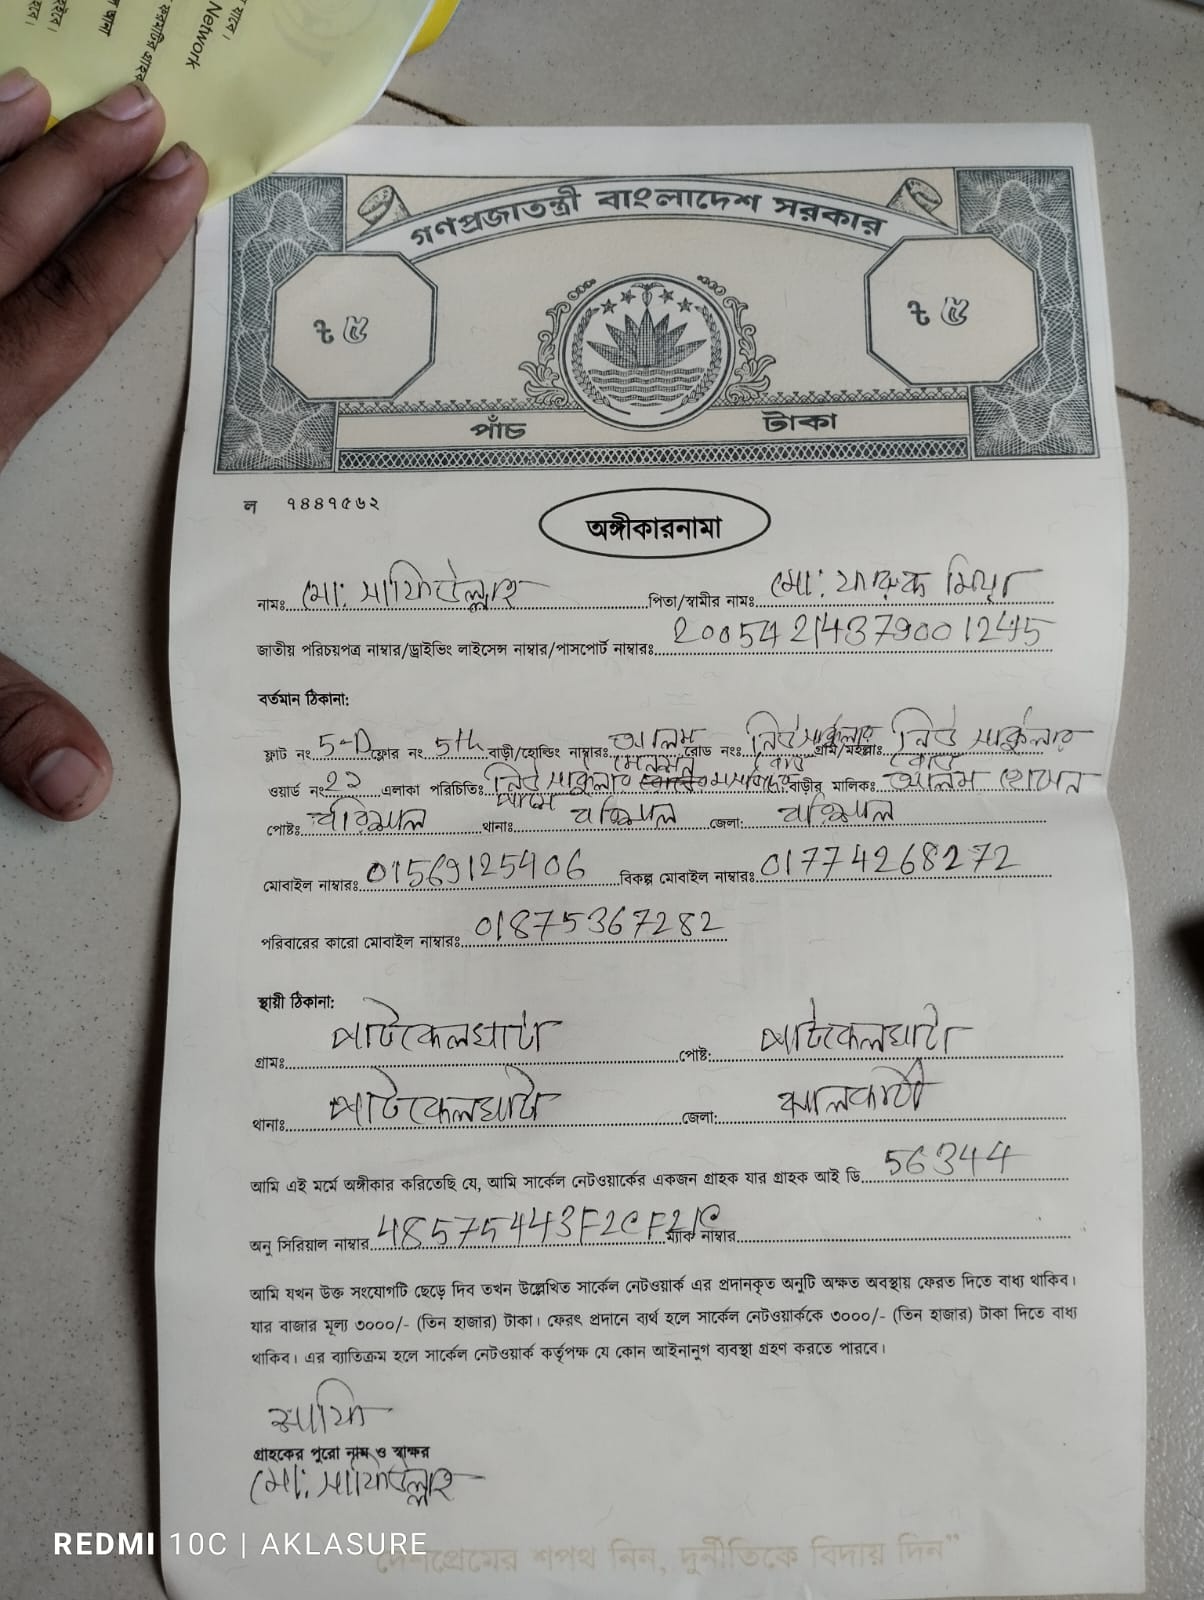 যাবে।
Network
গণপ্রজাতন্ত্রী বাংলাদেশ সরকার
৳ ৫
৳ ৫
পাঁচ টাকা
ল ৭৪৪৭৫৬২
অঙ্গীকারনামা
নামঃ মো: সাফিউল্লাহ পিতা/স্বামীর নামঃ মো: ফারুক মিয়া
জাতীয় পরিচয়পত্র নাম্বার/ড্রাইভিং লাইসেন্স নাম্বার/পাসপোর্ট নাম্বারঃ 20054214379001245
বর্তমান ঠিকানা:
ফ্লাট নং 5-D ফ্লোর নং 5th বাড়ী/হোল্ডিং নাম্বারঃ আলম রোড নং নিউ সার্কুলার রোড গ্রাম/মহল্লাঃ নিউ সার্কুলার রোড
ওয়ার্ড নং 22 এলাকা পরিচিতিঃ নিউ সার্কুলার বাড়ীর মালিকঃ আলম হোসেন
পোষ্টঃ বরিশাল থানাঃ বরিশাল জেলা: বরিশাল
মোবাইল নাম্বারঃ 01569125406 বিকল্প মোবাইল নাম্বারঃ 01774268272
পরিবারের কারো মোবাইল নাম্বারঃ 01875367282
স্থায়ী ঠিকানা:
গ্রামঃ পাটিকেলঘাটা পোষ্ট: পাটিকেলঘাটা
থানাঃ পাটিকেলঘাটা জেলা: ঝালকাঠী
আমি এই মর্মে অঙ্গীকার করিতেছি যে, আমি সার্কেল নেটওয়ার্কের একজন গ্রাহক যার গ্রাহক আই ডি 56344
অনু সিরিয়াল নাম্বার 48575443F2CF21C ম্যাক নাম্বার
আমি যখন উক্ত সংযোগটি ছেড়ে দিব তখন উল্লেখিত সার্কেল নেটওয়ার্ক এর প্রদানকৃত অনুটি অক্ষত অবস্থায় ফেরত দিতে বাধ্য থাকিব।
যার বাজার মূল্য ৩০০০/- (তিন হাজার) টাকা। ফেরৎ প্রদানে ব্যর্থ হলে সার্কেল নেটওয়ার্ককে ৩০০০/- (তিন হাজার) টাকা দিতে বাধ্য
থাকিব। এর ব্যাতিক্রম হলে সার্কেল নেটওয়ার্ক কর্তৃপক্ষ যে কোন আইনানুগ ব্যবস্থা গ্রহণ করতে পারবে।
সাফি
গ্রাহকের পুরো নাম ও স্বাক্ষর
মো: সাফিউল্লাহ
REDMI 10C | AKLASURE
দেশপ্রেমের শপথ নিন, দুর্নীতিকে বিদায় দিন”